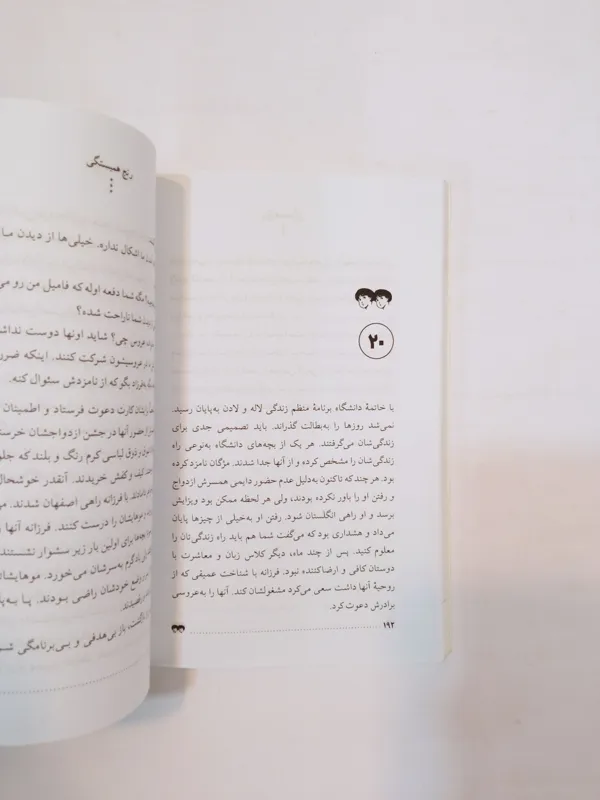 ۲۰
با خاتمهٔ دانشگاه برنامهٔ منظم زندگی لاله و لادن به‌پایان رسید.
نمی‌شد روزها را به‌بطالت گذراند. باید تصمیمی جدی برای
زندگی‌شان می‌گرفتند. هر یک از بچه‌های دانشگاه به‌نوعی راه
زندگی‌شان را مشخص کرده و از آنها جدا شدند. مژگان نامزد کرده
بود. هر چند که تاکنون به‌دلیل عدم حضور دایمی همسرش ازدواج
و رفتن او را باور نکرده بودند، ولی هر لحظه ممکن بود ویزایش
برسد و او راهی انگلستان شود. رفتن او به‌خیلی از چیزها پایان
می‌داد و هشداری بود که می‌گفت شما هم باید راه زندگی‌تان را
معلوم کنید. پس از چند ماه، دیگر کلاس زبان و معاشرت با
دوستان کافی و ارضاکننده نبود. فرزانه با شناخت عمیقی که از
روحیهٔ آنها داشت سعی می‌کرد مشغولشان کند. آنها را به‌عروسی
برادرش دعوت کرد.
۱۹۲
رنج همبستگی
ما اشکال نداره. خیلی‌ها از دیدن ما
مگه شما دفعه اوله که فامیل من رو می
شما ناراحت شده؟
عروس چی؟ شاید اونها دوست نداش
عروسیشون شرکت کنند. اینکه ضرر
بگو که از نامزدش سئوال کنه.
کارت دعوت فرستاد و اطمینان
حضور آنها در جشن ازدواجشان خرس
ذوق لباسی کرم رنگ و بلند که جلو
کیف و کفش خریدند. آنقدر خوشحال
با فرزانه راهی اصفهان شدند. م
موهایشان را درست کنند. فرزانه آنها
برای اولین بار زیر سشوار نشستند
گرم به‌سرشان می‌خورد. موهایشان
خودشان راضی بودند. پا به‌پا
باز بی‌هدفی و بی‌برنامگی شـ